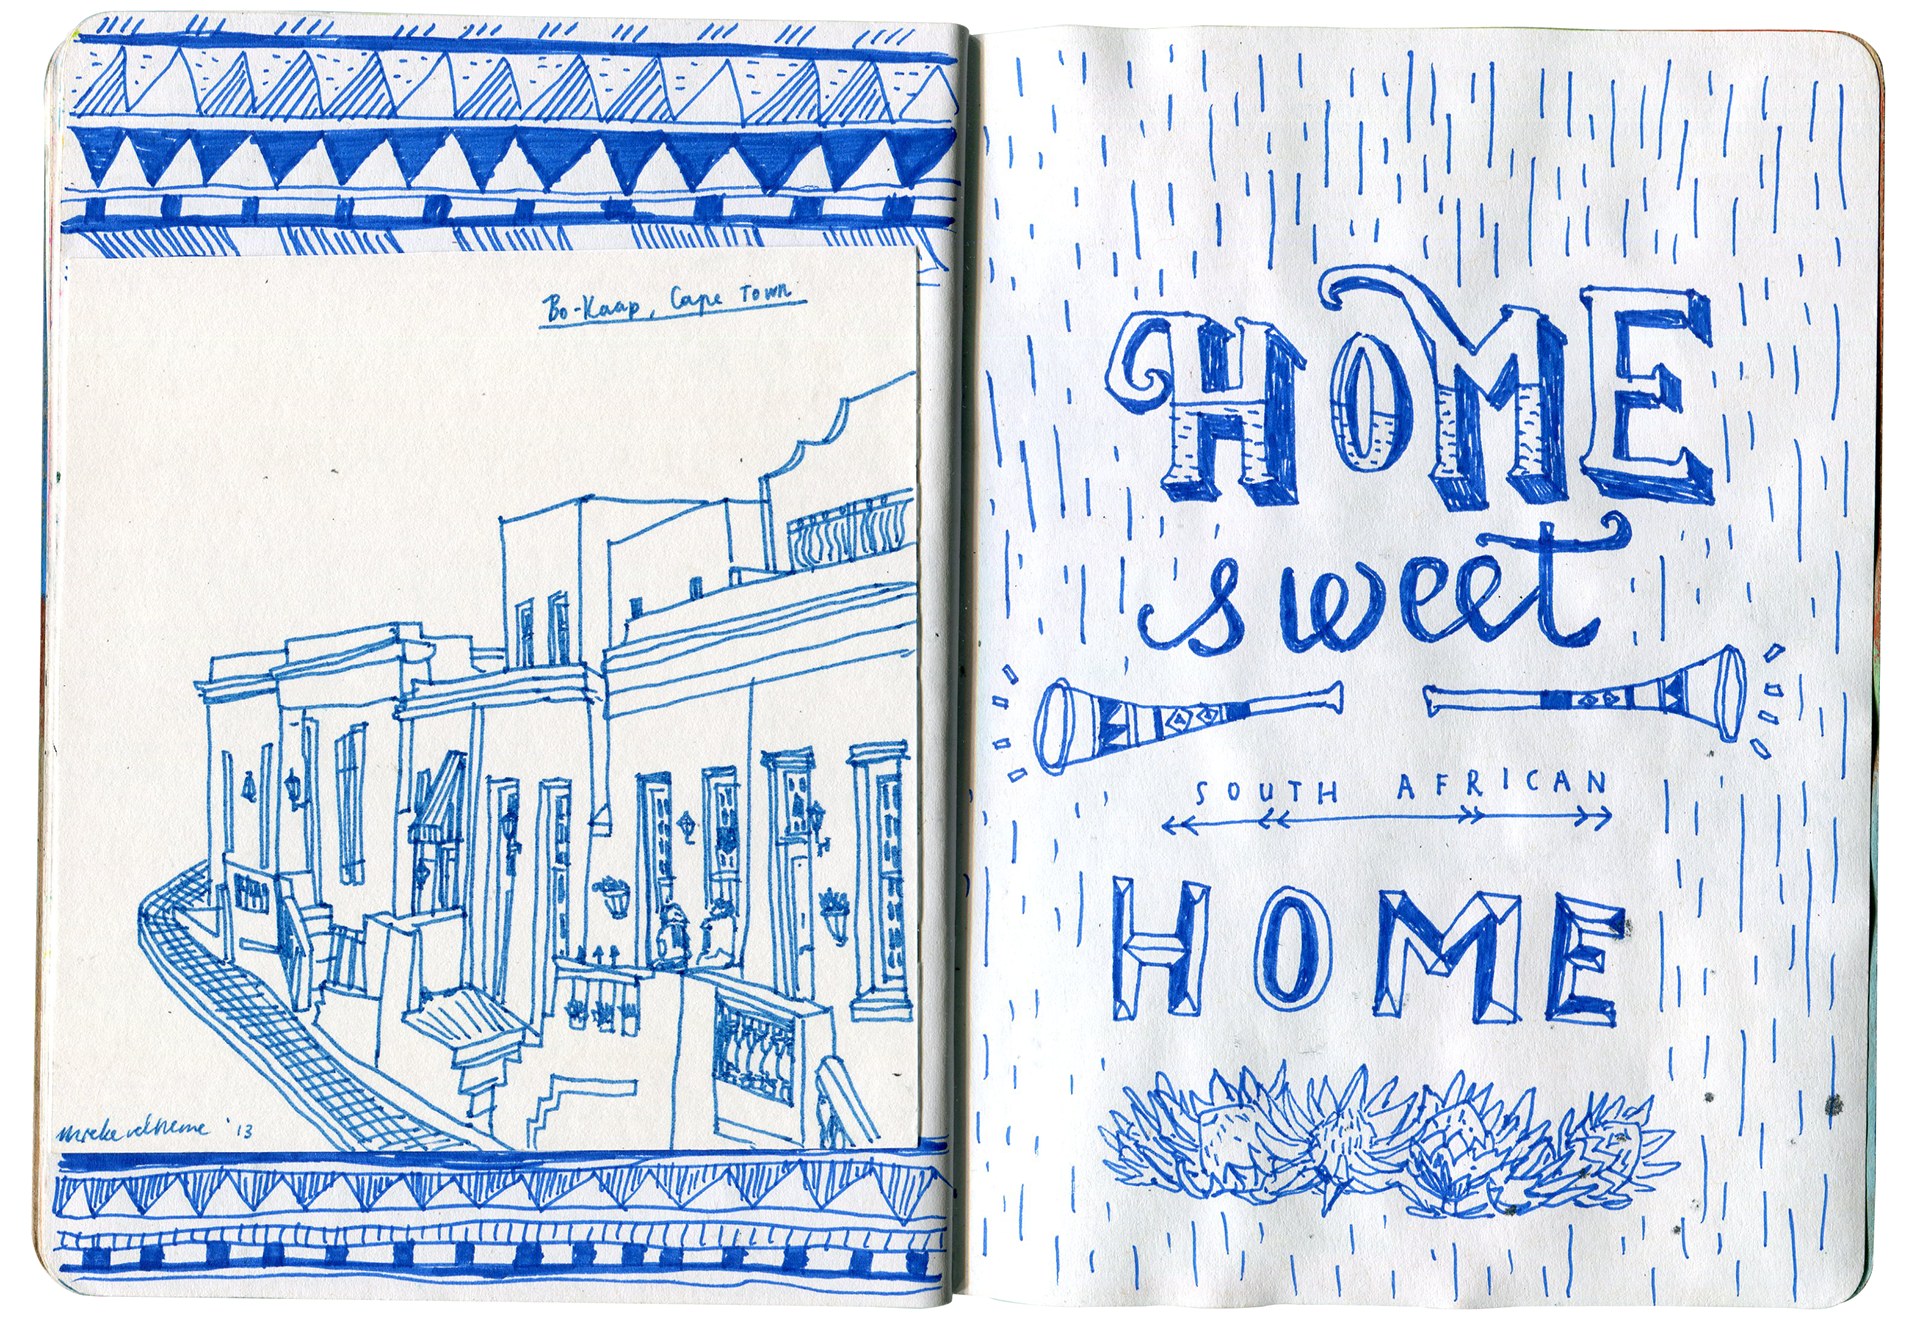 Bo-Kaap, Cape Town
'13
HOME
sweet
SOUTH AFRICAN
HOME